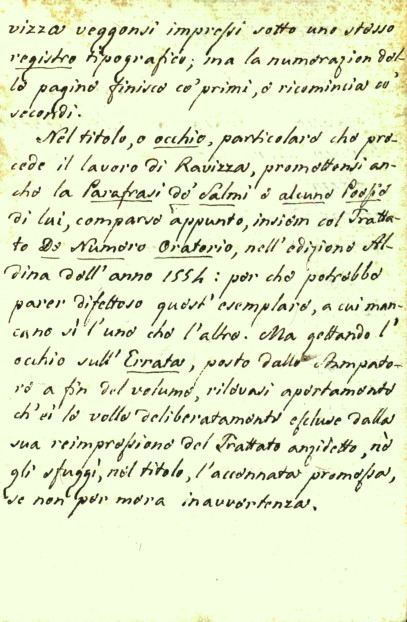 vizza veggonsi impressi sotto uno stesso
registro tipografico; ma la numerazion del-
le pagine finisce co' primi, e ricomincia co'
secondi.
Nel titolo, o occhio, particolare che pre-
cede il lavoro di Ravizza, promettonsi an-
che la Parafrasi de' Salmi e alcune Poesie
di lui, comparse appunto, insiem col Tratta-
to De Numero Oratorio, nell'edizione Al-
dina dell'anno 1554: per che potrebbe
parer difettoso quest'esemplare, a cui man-
cano sì l'une che l'altre. Ma gettando l'
occhio sull'Errata, posto dallo Stampato-
re a fin del volume, rilevasi apertamente
ch'ei le volle deliberatamente escluse dalla
sua reimpressione del Trattato anzidetto, nè
gli sfuggì, nel titolo, l'accennata promessa,
se non per mera inavvertenza.